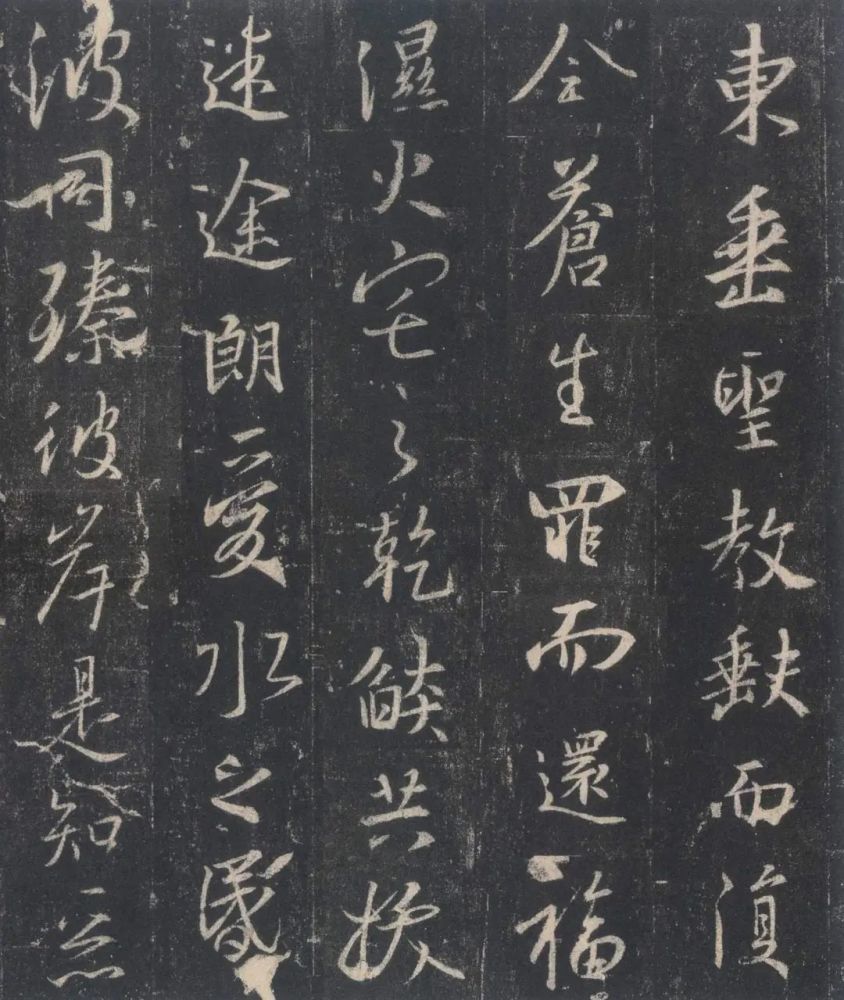 東垂聖教缺而復
全蒼生罪而還福
濕火宅之乾燄共拔
迷途朗愛水之昬
波同臻彼岸是知惡